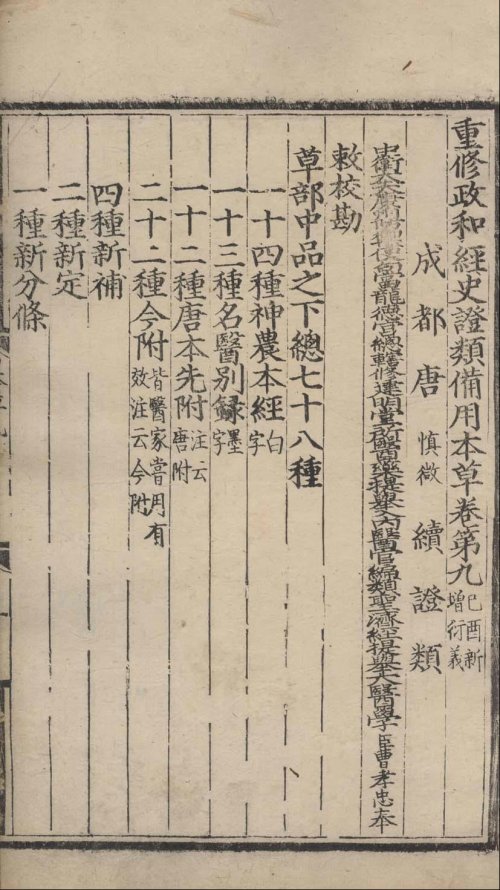 重修政和經史證類備用本草卷第九己酉新增衍義
成都唐慎微續證類
中衛大夫康州防禦使句當龍德宮總轄修建明堂所醫藥提舉入內醫官編類聖濟經提舉太醫學臣曹孝忠奉
敕校勘
草部中品之下總七十八種
一十四種神農本經白字
一十三種名醫別錄墨字
一十二種唐本先附注云唐附
二十二種今附皆醫家嘗用有效注云今附
四種新補
二種新定
一種新分條